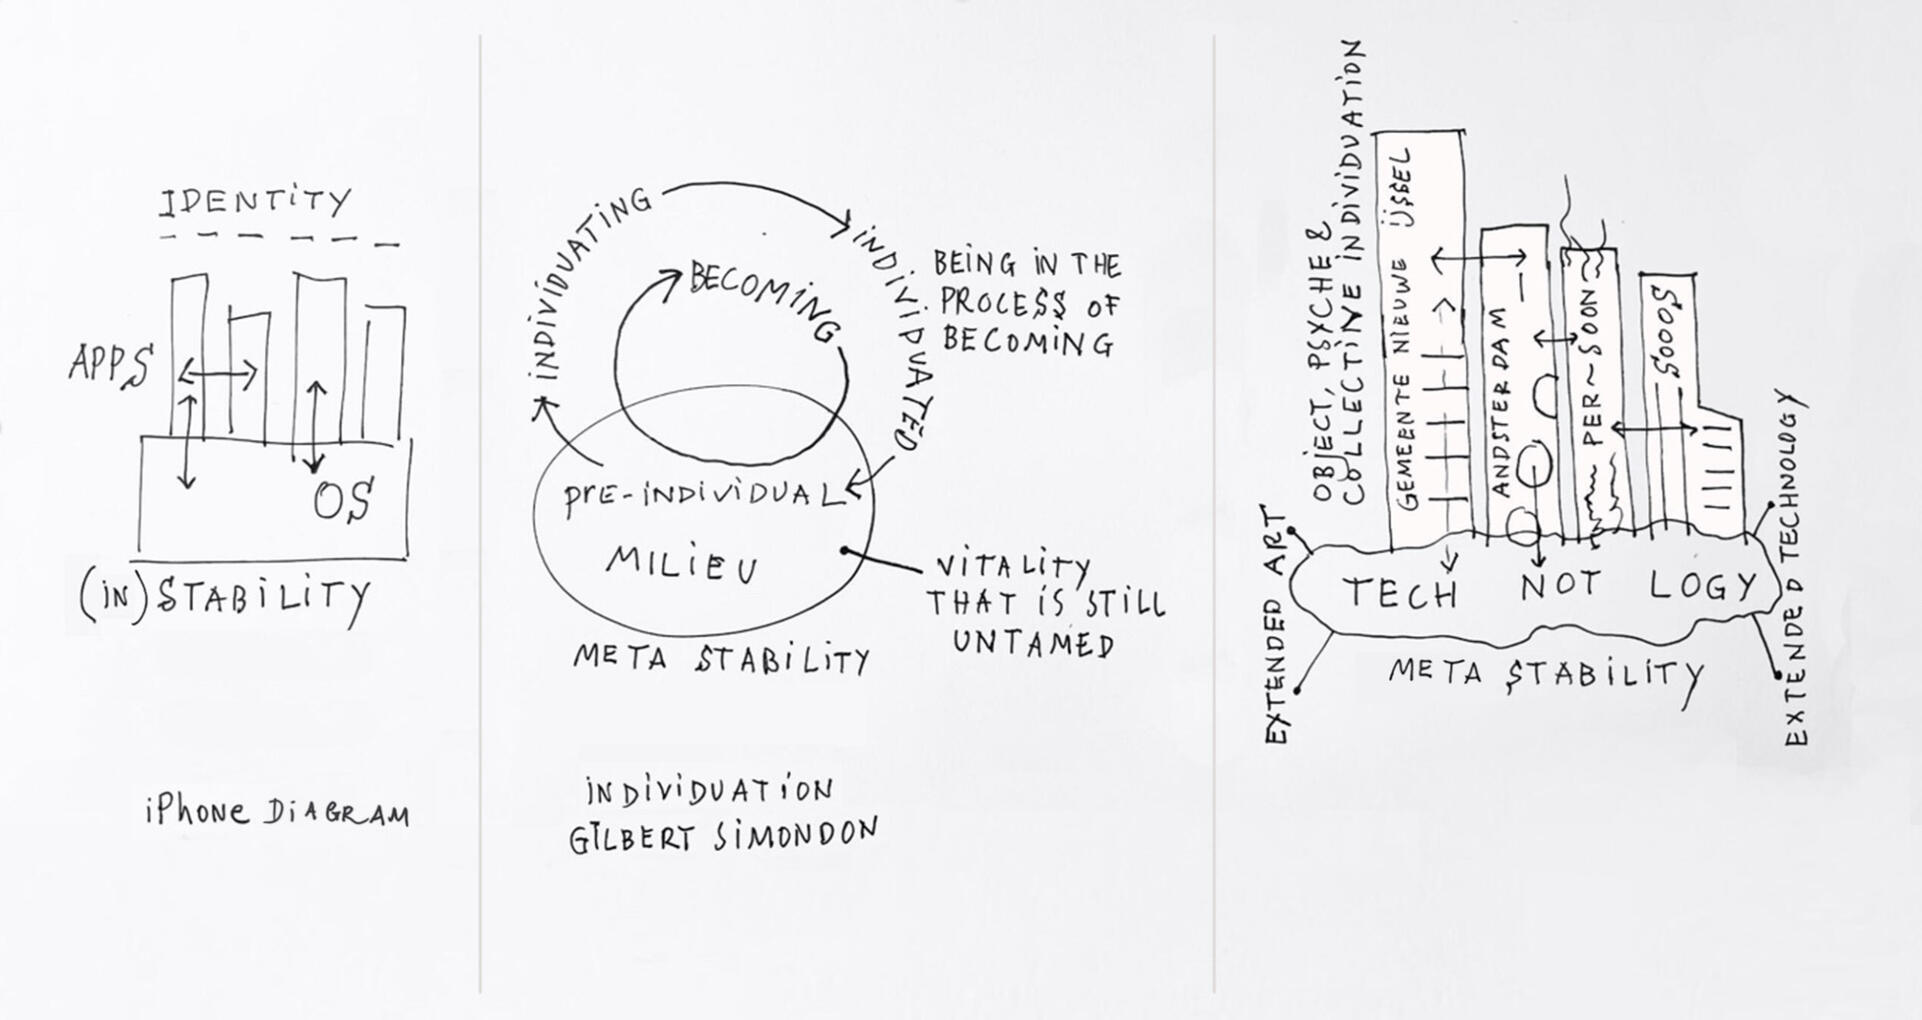 IDENTITY
APPS
OS
(IN) STABILITY
iPhone DIAGRAM
INDIVIDUATING
INDIVIDUATED
BECOMING
BEING IN THE
PROCESS OF
BECOMING
PRE-INDIVIDUAL
MILIEU
VITALITY
THAT IS STILL
UNTAMED
META STABILITY
INDIVIDUATION
GILBERT SIMONDON
OBJECT, PSYCHE &
COLLECTIVE INDIVIDUATION
GEMEENTE NIEUWE IJSSEL
ANDSTERDAM
PER~SOON
SOOOS
EXTENDED ART
TECH NOT LOGY
EXTENDED TECHNOLOGY
META STABILITY